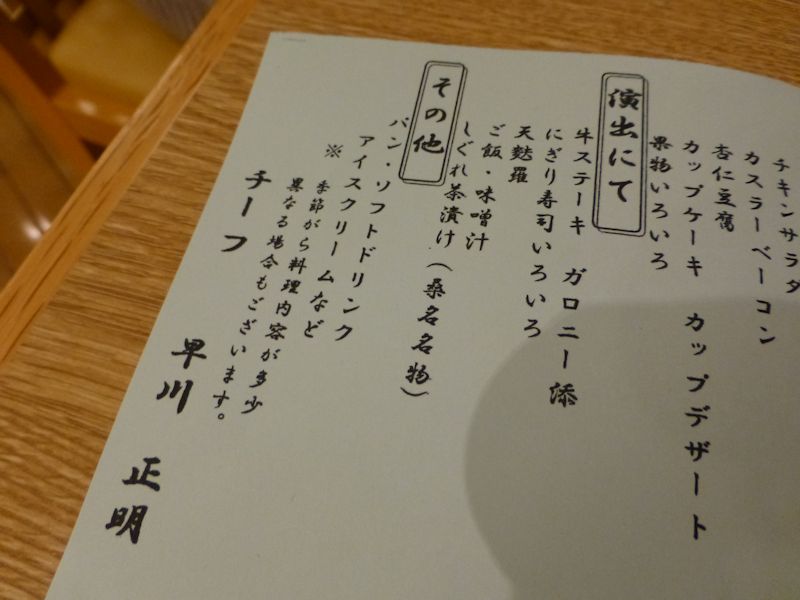 チキンサラダ
カスラーベーコン
杏仁豆腐
カップケーキ カップデザート
果物いろいろ
演出にて
牛ステーキ ガロニー添
にぎり寿司いろいろ
天麩羅
ご飯・味噌汁
しぐれ茶漬け(桑名名物)
その他
パン・ソフトドリンク
アイスクリームなど
※ 季節がら料理内容が多少
異なる場合もございます。
チーフ
早川 正明